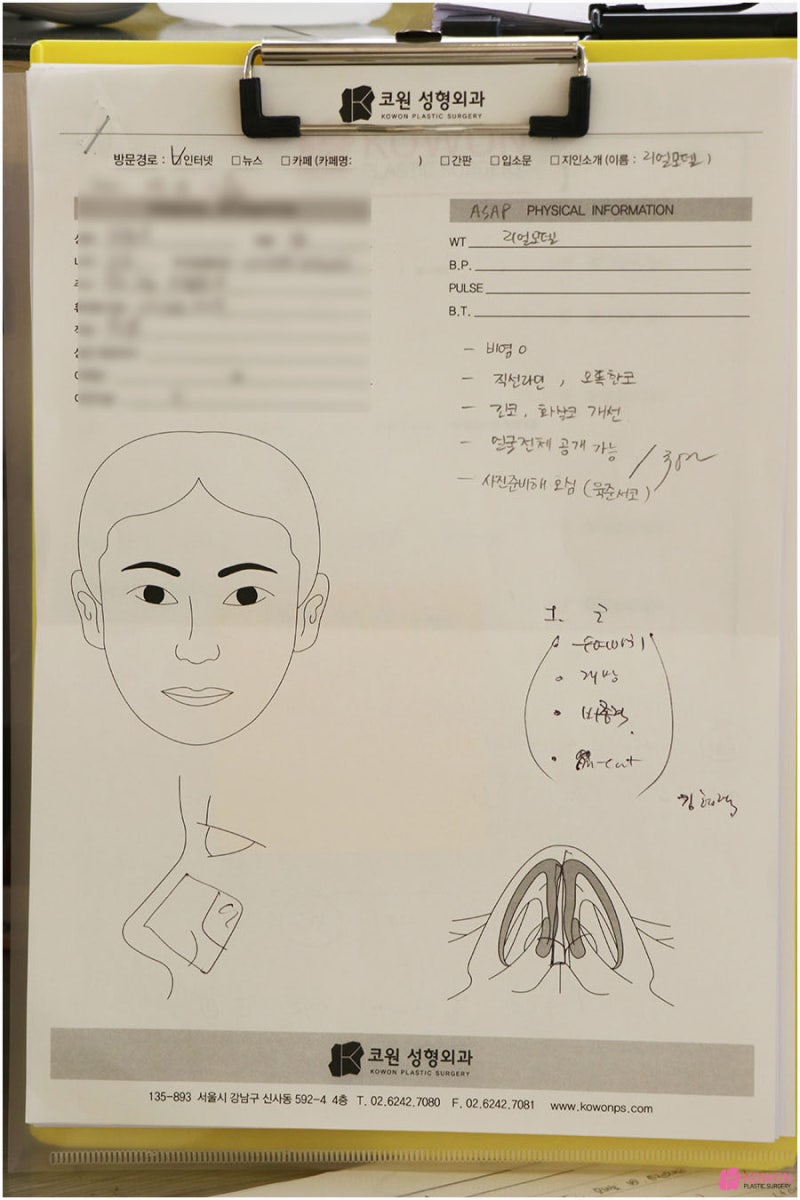 코원 성형외과
KOWON PLASTIC SURGERY
방문경로 : V인터넷 □뉴스 □카페 (카페명: ) □간판 □입소문 □지인소개 (이름 : 리얼모델 )
ASAP PHYSICAL INFORMATION
WT 리얼모델
B.P.
PULSE
B.T.
- 비염 O
- 직선라인, 오똑한코
- 긴코, 화살코 개선
- 얼굴전체 공개 가능
- 사진준비해 오심 (육준서코)
개방
비중격
-cut
코원 성형외과
KOWON PLASTIC SURGERY
135-893 서울시 강남구 신사동 592-4 4층 T. 02.6242.7080 F. 02.6242.7081 www.kowonps.com
PLASTIC SURGERY